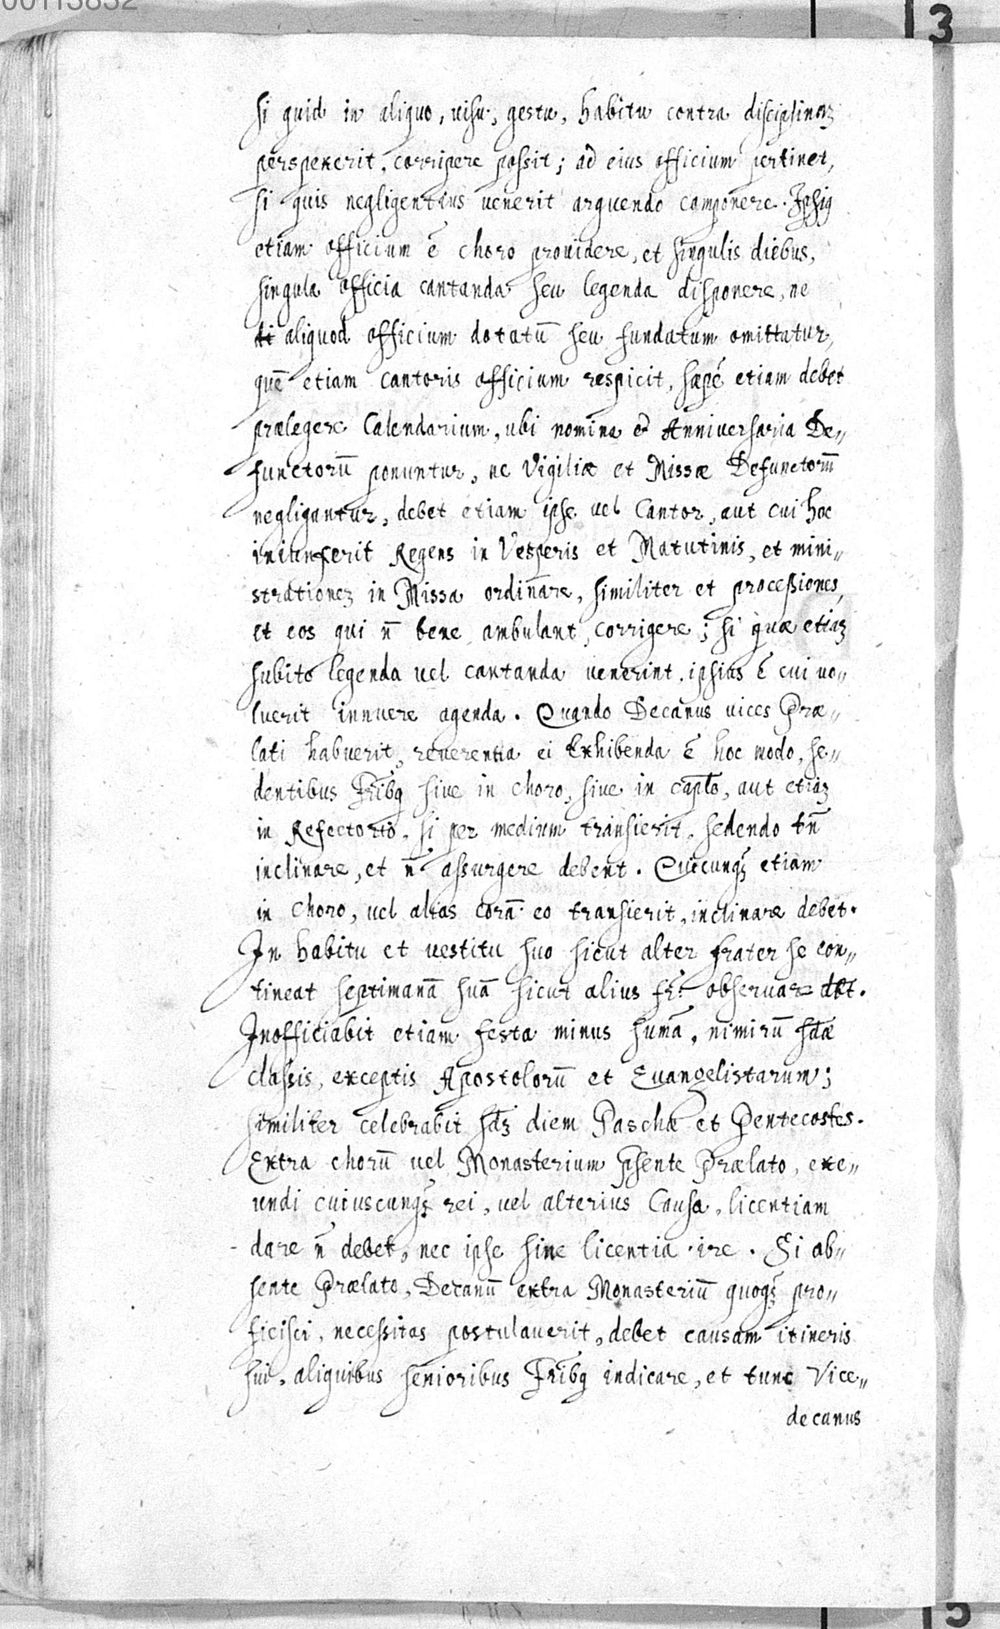 00113832
3
si quid in aliquo, uisu, gestu, habitu contra disciplinaꝫ
perspexerit, corripere possit; ad eius officium pertinet,
si quis negligentius uenerit arguendo componere. Ipsiꝯ
etiam officium ē choro prouidere, et singulis diebus,
singula officia cantanda seu legenda disponere, ne
aliquod officium dotatū seu fundatum omittatur,
quē etiam cantoris officium respicit, sæpè etiam debet
prælegere Calendarium, ubi nomina & Anniuersaria De„
functorū ponuntur, ne Vigiliæ et Missæ Defunctorū
negligantur, debet etiam ipse uel Cantor, aut cui hoc
iniunxerit Regens in Vesperis et Matutinis, et mini„
strationeꝫ in Missa ordinare, similiter et processiones,
et eos qui n̄ bene ambulant, corrigere; si quæ etiaꝫ
subito legenda uel cantanda uenerint, ipsius ē cui uo„
luerit innuere agenda. Quando Decanus uices Præ„
lati habuerit, reuerentia ei exhibenda ē hoc modo, se„
dentibus Fr̄ibꝯ siue in choro, siue in capt̄o, aut etiaꝫ
in Refectorio, si per medium transierit, sedendo tn̄
inclinare, et n̄ assurgere debent. Quicunqꝫ etiam
in choro, uel alias corā eo transierit, inclinare debet.
In habitu et uestitu suo sicut alter frater se con„
tineat septimanā suā sicut alius fr̄. obseruare dēt.
Inofficiabit etiam festa minus sum̄a, nimirū sd̄æ
classis, exceptis Apostolorū et Euangelistarum;
similiter celebrabit sd̄ꝫ diem Paschæ et Pentecostes.
Extra chorū uel Monasterium p̄sente Prælato, exe„
undi cuiuscunqꝫ rei, uel alterius Causa, licentiam
dare n̄ debet, nec ipse sine licentia ire. Si ab„
sente Prælato, Decanū extra Monasteriū quoqꝫ pro„
ficisci, necessitas postulauerit, debet causam itineris
sui, aliquibus senioribus Fr̄ibꝯ indicare, et tunc Vice„
decanus
5